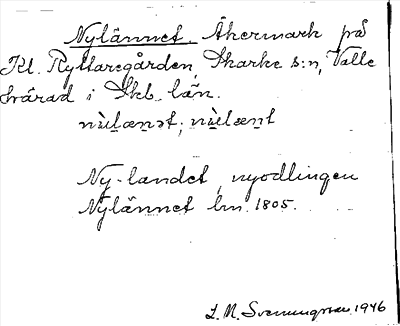 Nylännet. Åkermark på
Kl. Ryttaregården, Skarke s:n, Valle
härad i Skb. län.
nùlænət, nùlænt
Ny-landet, nyodlingen
Nylännet lm. 1805.
L. M. Svenungsson 1946